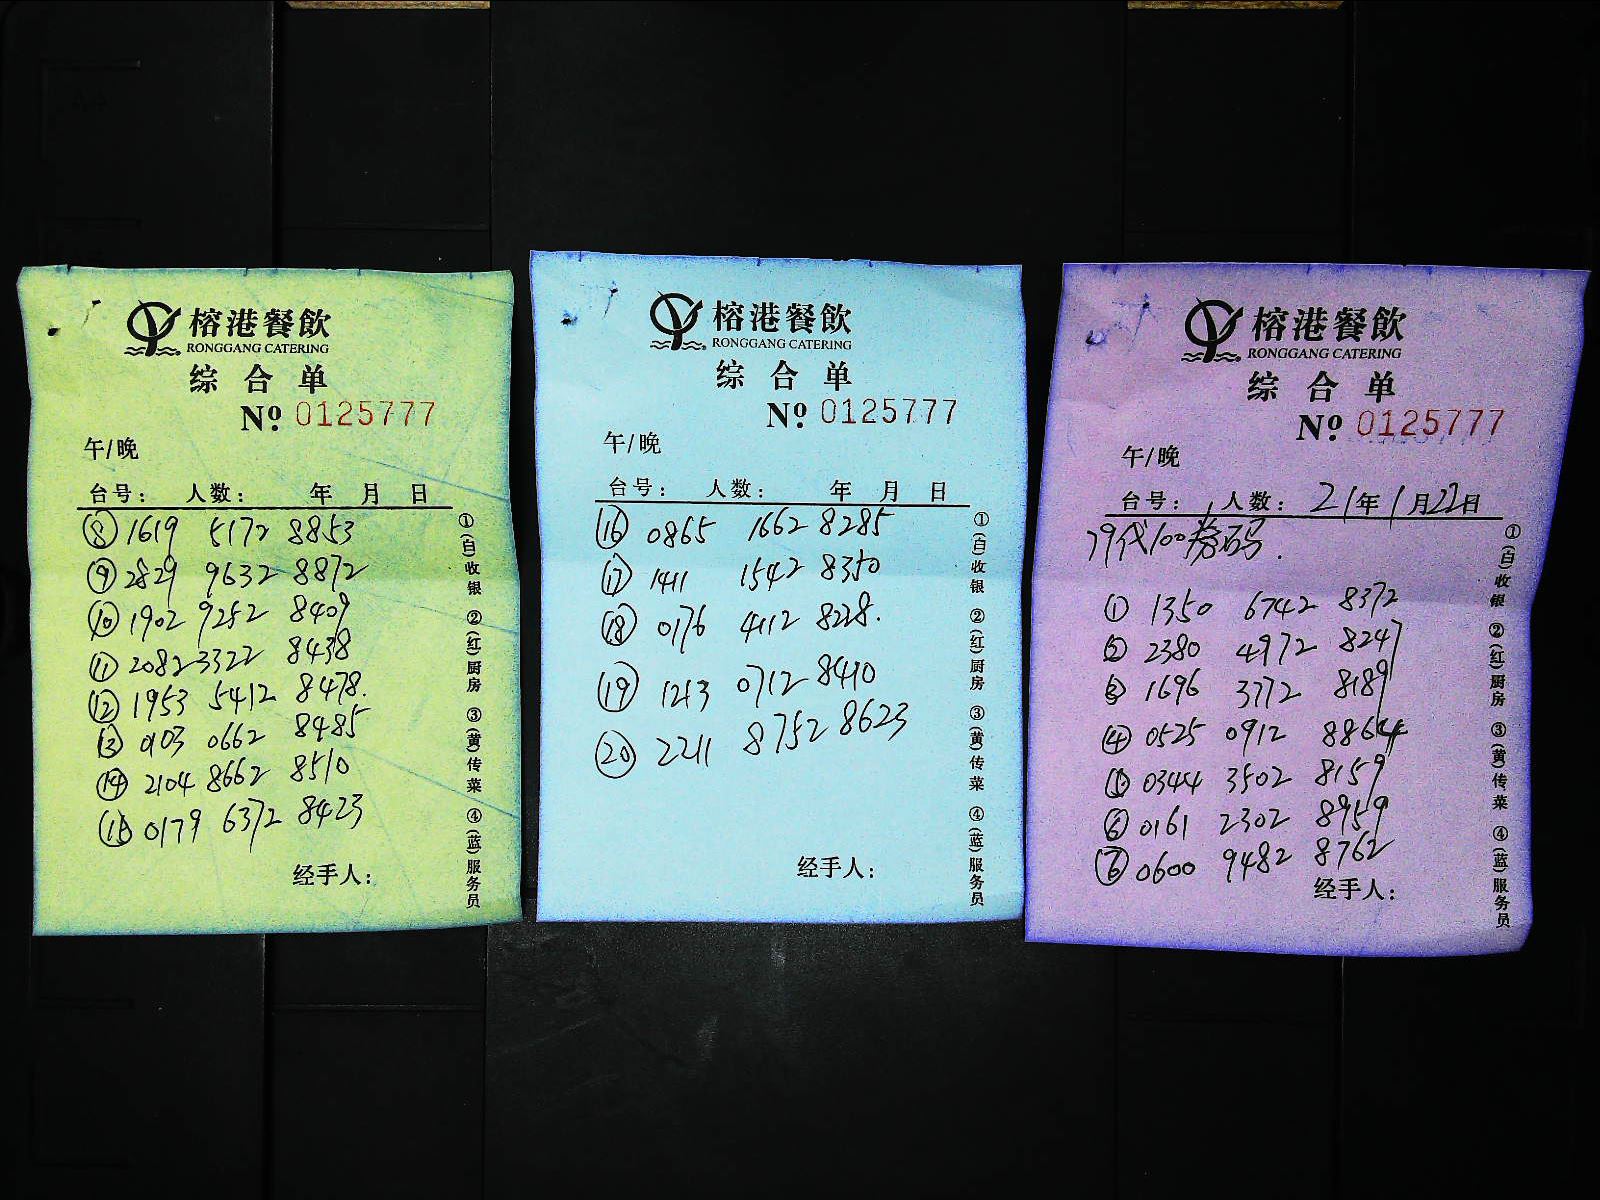 榕港餐飲
RONGGANG CATERING
综合单
Nº 0125777
午/晚
台号： 人数： 年 月 日
⑧ 1619 5172 8853
⑨ 2829 9632 8872
⑩ 1902 9252 8409
⑪ 2082 3322 8438
⑫ 1953 5412 8478.
⑬ 0103 0662 8485
⑭ 2104 8662 8510
⑮ 0179 6372 8423
经手人：
①(白)收银 ②(红)厨房 ③(黄)传菜 ④(蓝)服务员
榕港餐飲
RONGGANG CATERING
综合单
Nº 0125777
午/晚
台号： 人数： 年 月 日
⑯ 0865 1662 8285
⑰ 1411 1542 8350
⑱ 0176 4112 8228.
⑲ 1213 0712 8410
⑳ 2211 8752 8623
经手人：
①(白)收银 ②(红)厨房 ③(黄)传菜 ④(蓝)服务员
榕港餐飲
RONGGANG CATERING
综合单
Nº 0125777
午/晚
台号： 人数： 21年1月22日
79代100券码.
① 1350 6742 8372
② 2380 4972 8247
③ 1696 3772 8189
④ 0525 0912 8864
⑤ 0344 3502 8159
⑥ 0161 2302 8959
⑥ 0600 9482 8762
经手人：
①(白)收银 ②(红)厨房 ③(黄)传菜 ④(蓝)服务员